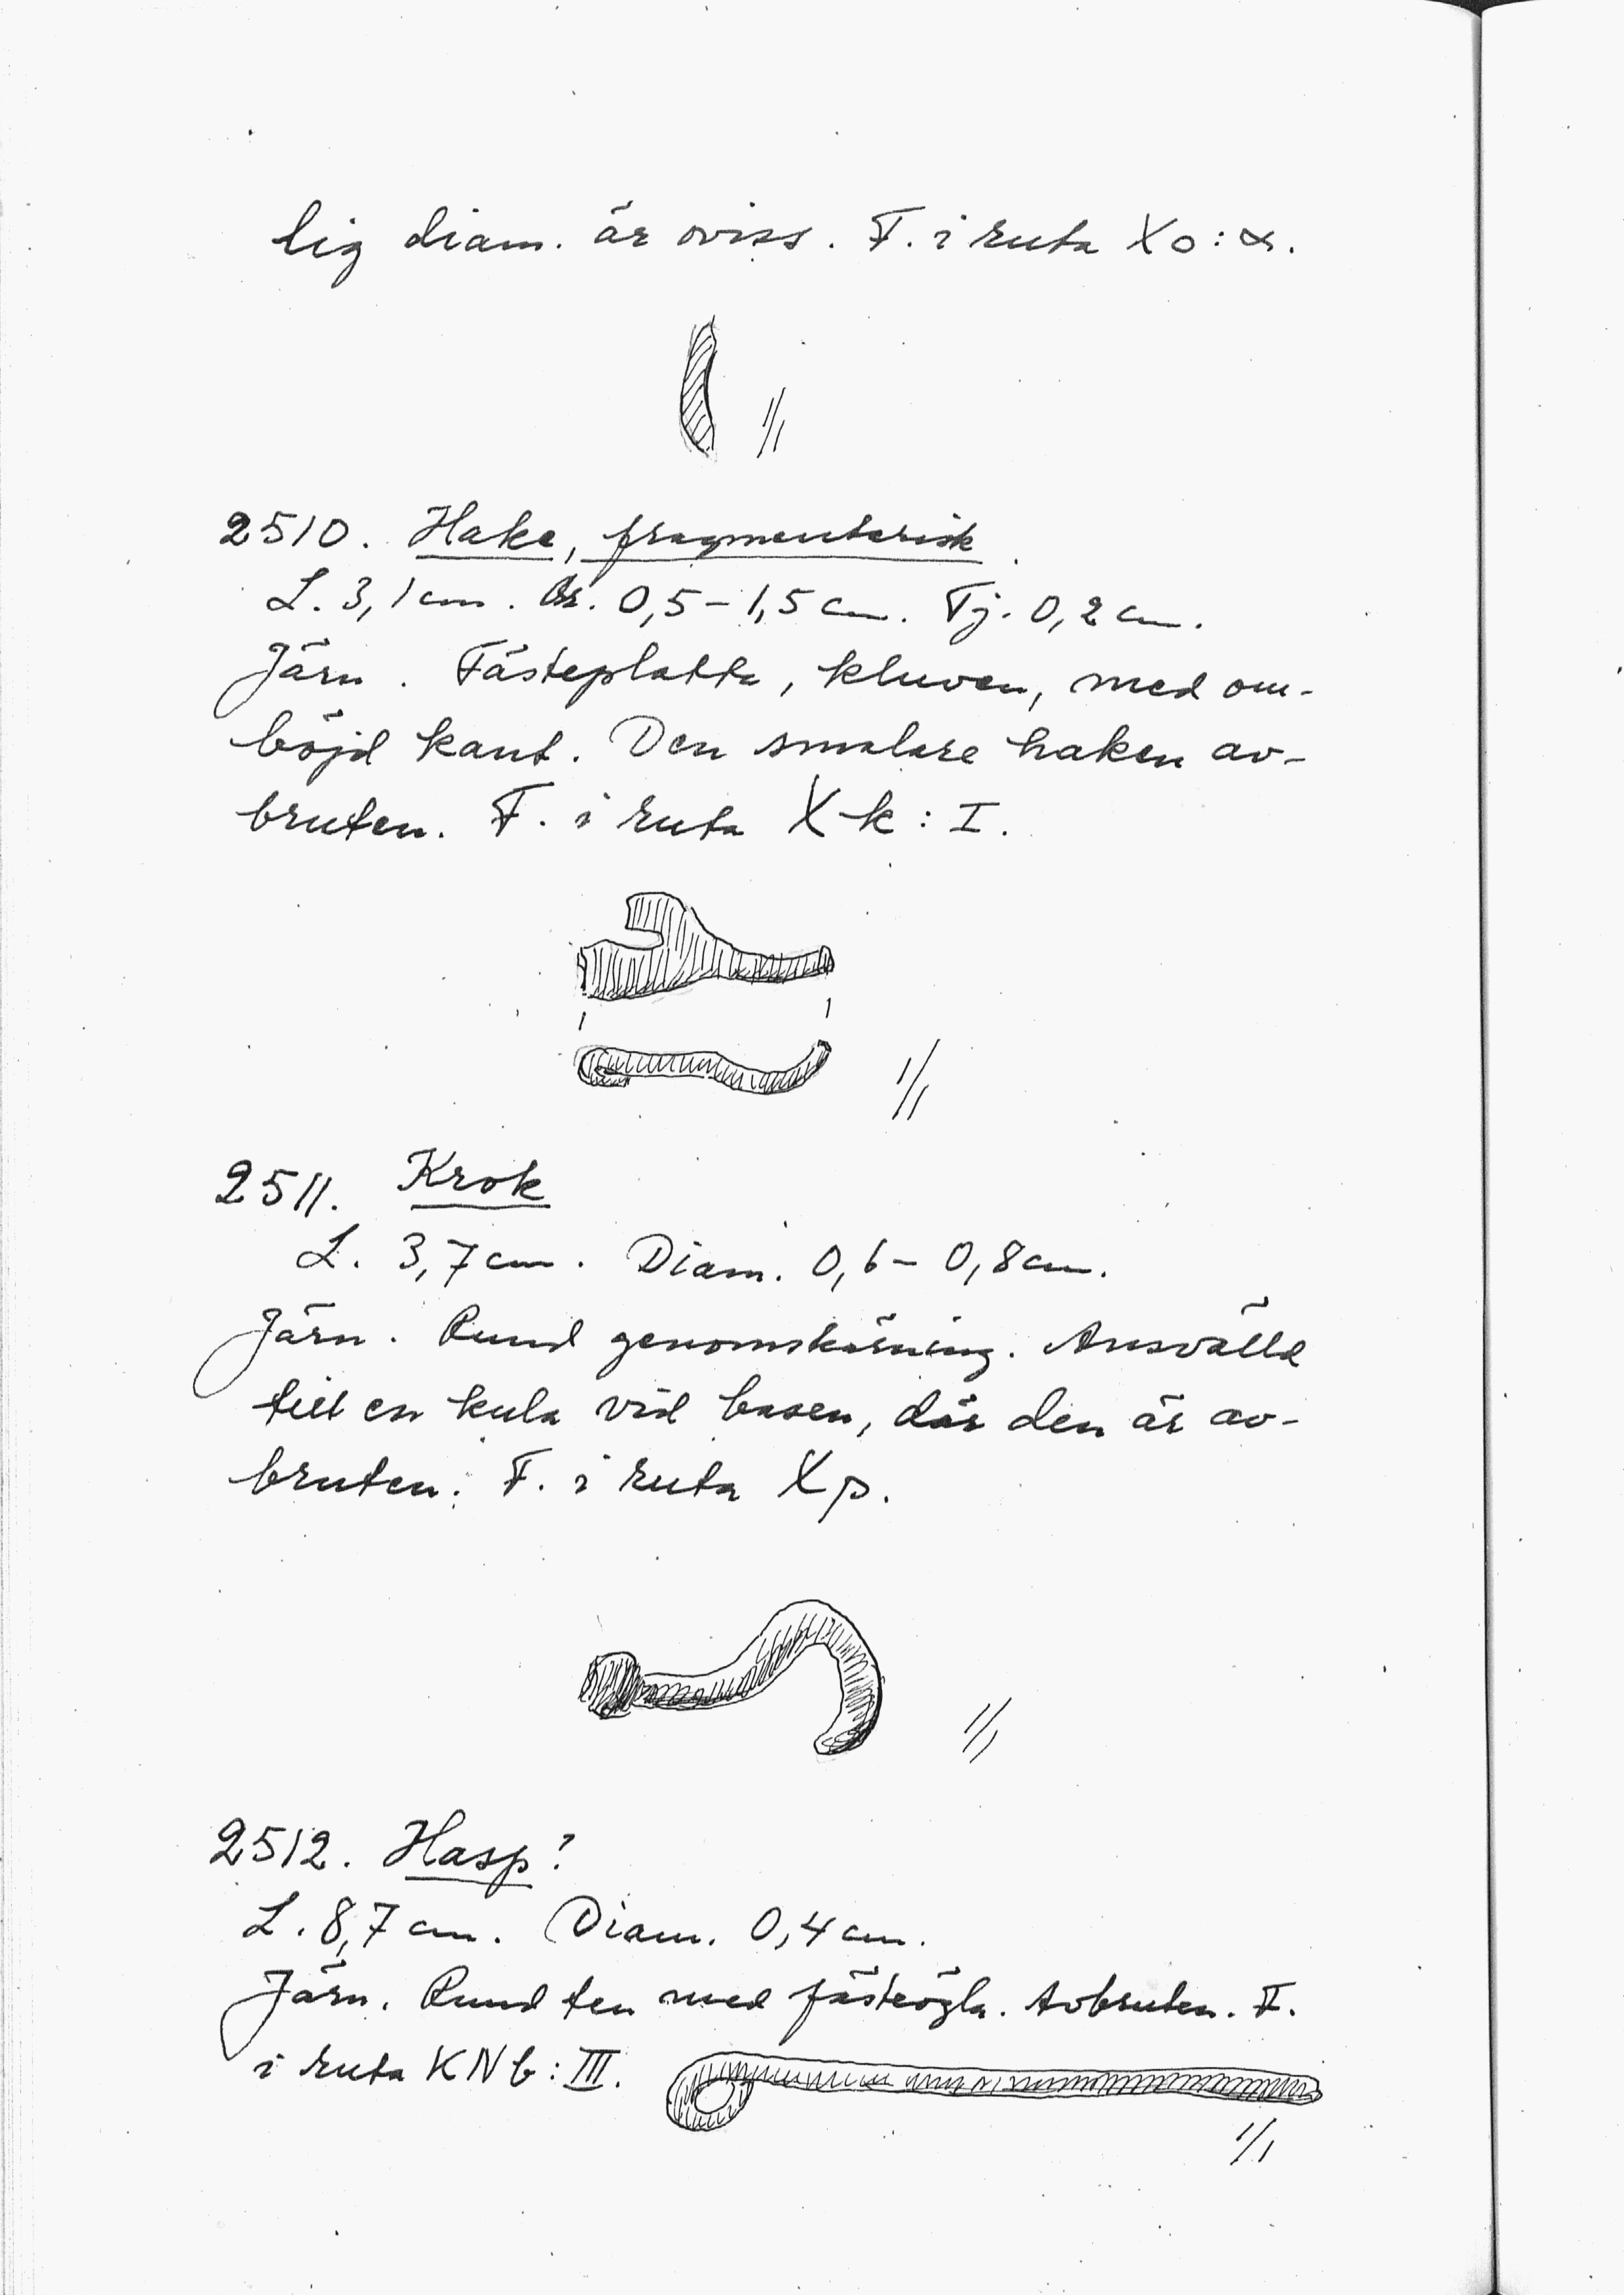 lig diam. är oviss. F. i ruta Xo:α.
1/1
2510. Hake, fragmentarisk
L. 3,1 cm. Br. 0,5-1,5 cm. Tj. 0,2 cm.
Järn. Fästeplatta, kluven, med om-
böjd kant. Den smalare haken av-
bruten. F. i ruta Xk: I.
1/1
2511. Krok
L. 3,7 cm. Diam. 0,6- 0,8 cm.
Järn. Rund genomskärning. Ansvälld
till en kula vid basen, där den är av-
bruten. F. i ruta Xp.
1/1
2512. Hasp?
L. 8,7 cm. Diam. 0,4 cm.
Järn. Rund ten med fästeögla. Avbruten. F.
i ruta KNb: III.
1/1